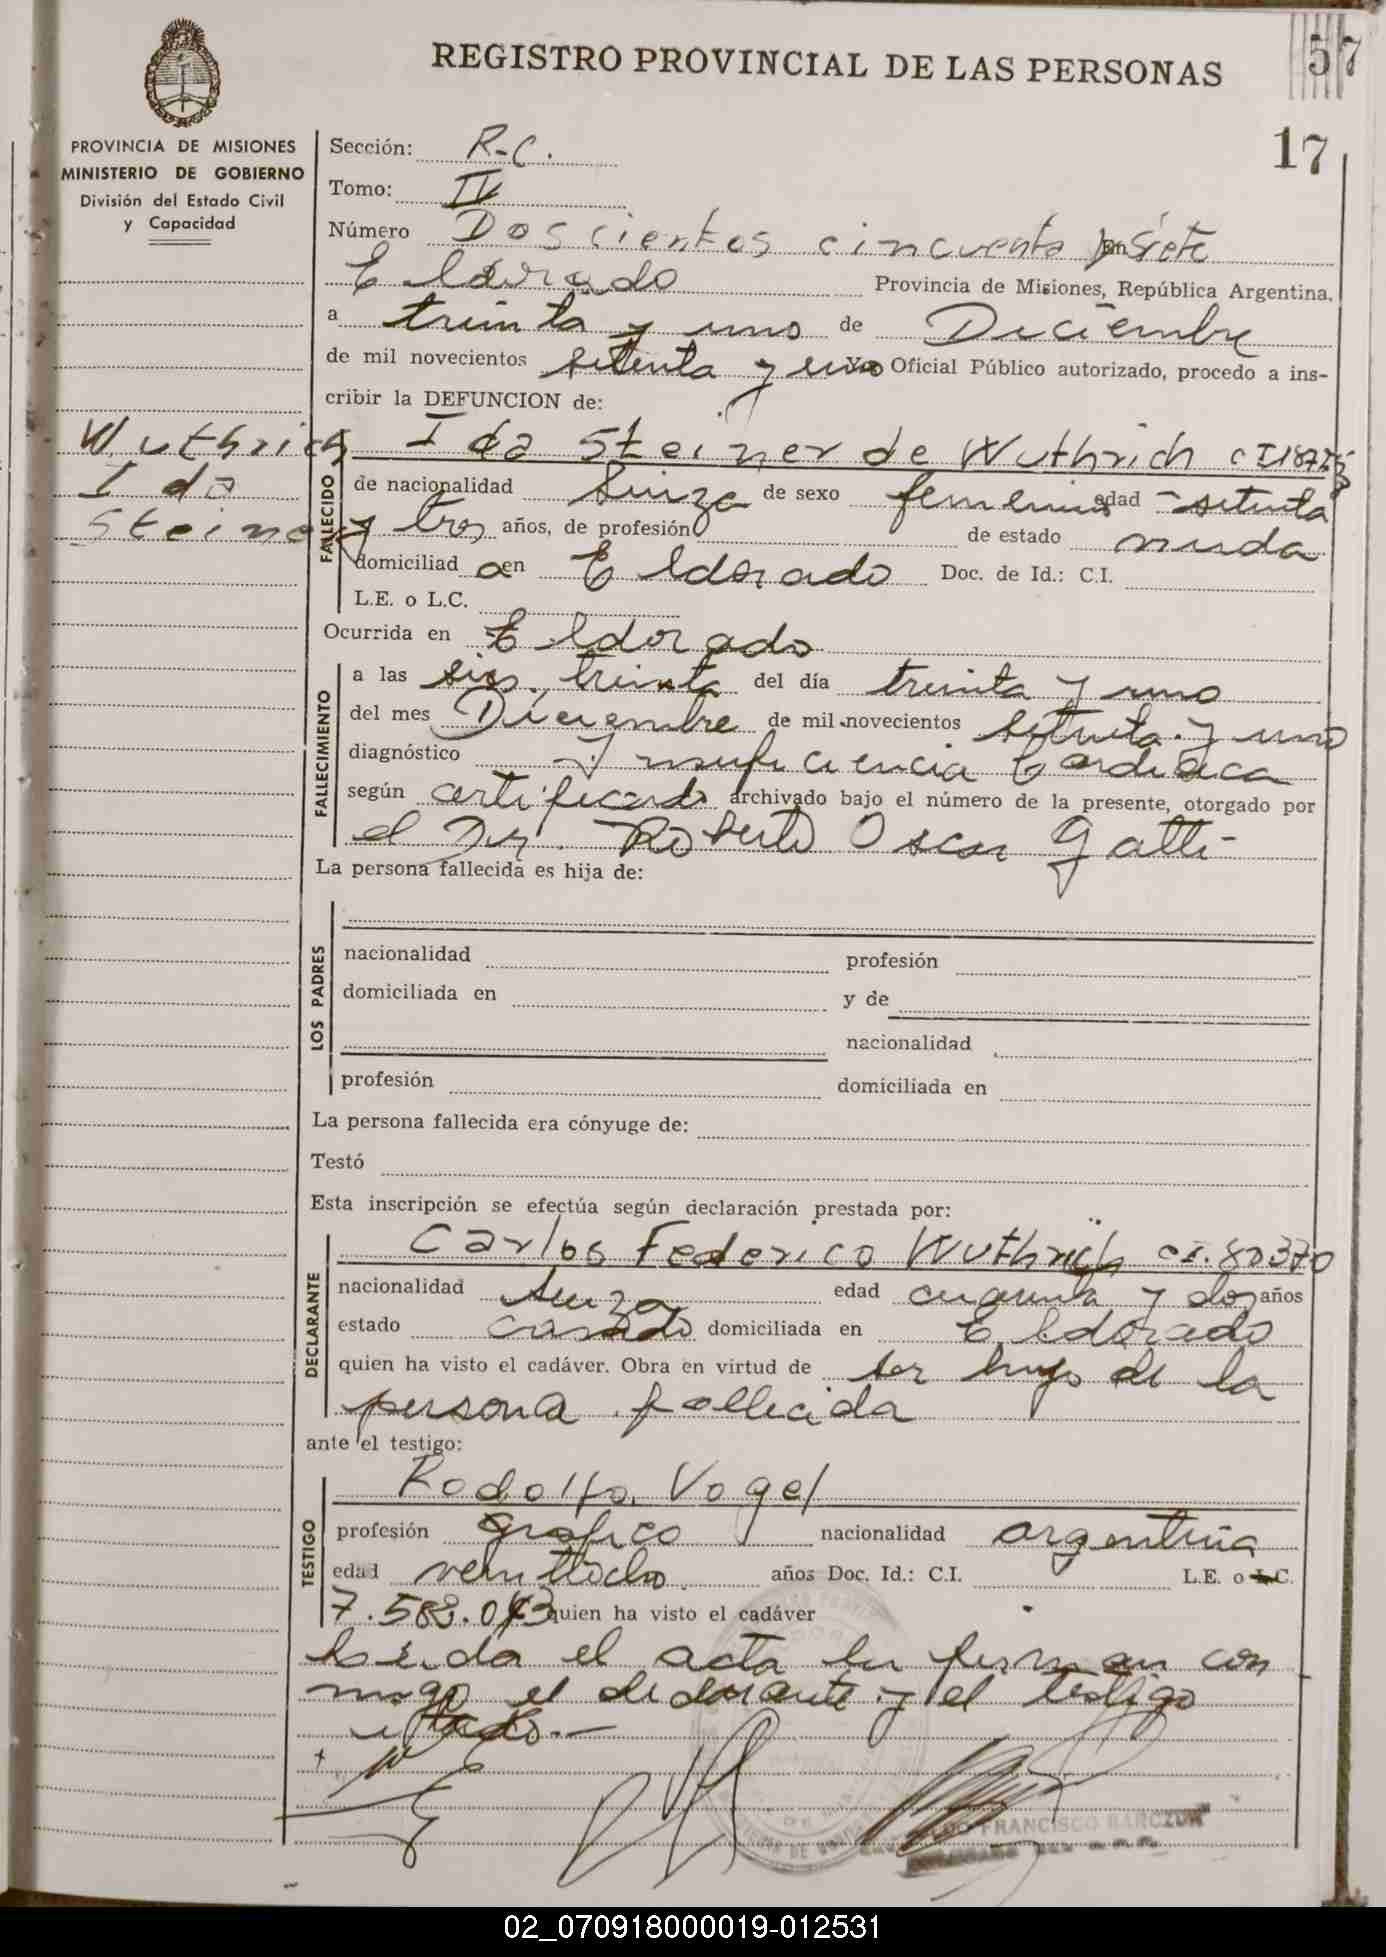 REGISTRO PROVINCIAL DE LAS PERSONAS
57
17
PROVINCIA DE MISIONES
MINISTERIO DE GOBIERNO
División del Estado Civil
y Capacidad
Sección: R-C.
Tomo: IV
Número Doscientos cincuenta y siete En
Eldorado Provincia de Misiones, República Argentina.
a treinta y uno de Diciembre
de mil novecientos setenta y uno Yo Oficial Público autorizado, procedo a ins-
cribir la DEFUNCION de:
Wuthrich
Ida
Steiner
FALLECIDO
Ida Steiner de Wuthrich CI
de nacionalidad Suiza de sexo femenino edad setenta
y tres años, de profesión de estado viuda
domiciliad a en Eldorado Doc. de Id.: C.I.
L.E. o L.C.
Ocurrida en Eldorado
FALLECIMIENTO
a las seis, treinta del día treinta y uno
del mes Diciembre de mil novecientos setenta y uno
diagnóstico Insuficiencia Cardiaca
según certificado archivado bajo el número de la presente, otorgado por
el Dr. Roberto Oscar Gatti
La persona fallecida es hija de:
LOS PADRES
nacionalidad profesión
domiciliada en y de
nacionalidad
profesión domiciliada en
La persona fallecida era cónyuge de:
Testó
Esta inscripción se efectúa según declaración prestada por:
DECLARANTE
Carlos Federico Wüthrich CI. 80370
nacionalidad Suiza edad cuarenta y dos años
estado casado domiciliada en Eldorado
quien ha visto el cadáver. Obra en virtud de ser hijo de la
persona fallecida
ante el testigo:
TESTIGO
Rodolfo Vogel
profesión gráfico nacionalidad argentina
edad veintiocho años Doc. Id.: C.I. L.E. o L.C.
quien ha visto el cadáver
Leida el acta la firman con
migo el declarante y el testigo
citado.—
FRANCISCO BARCZUK
02_070918000019-012531